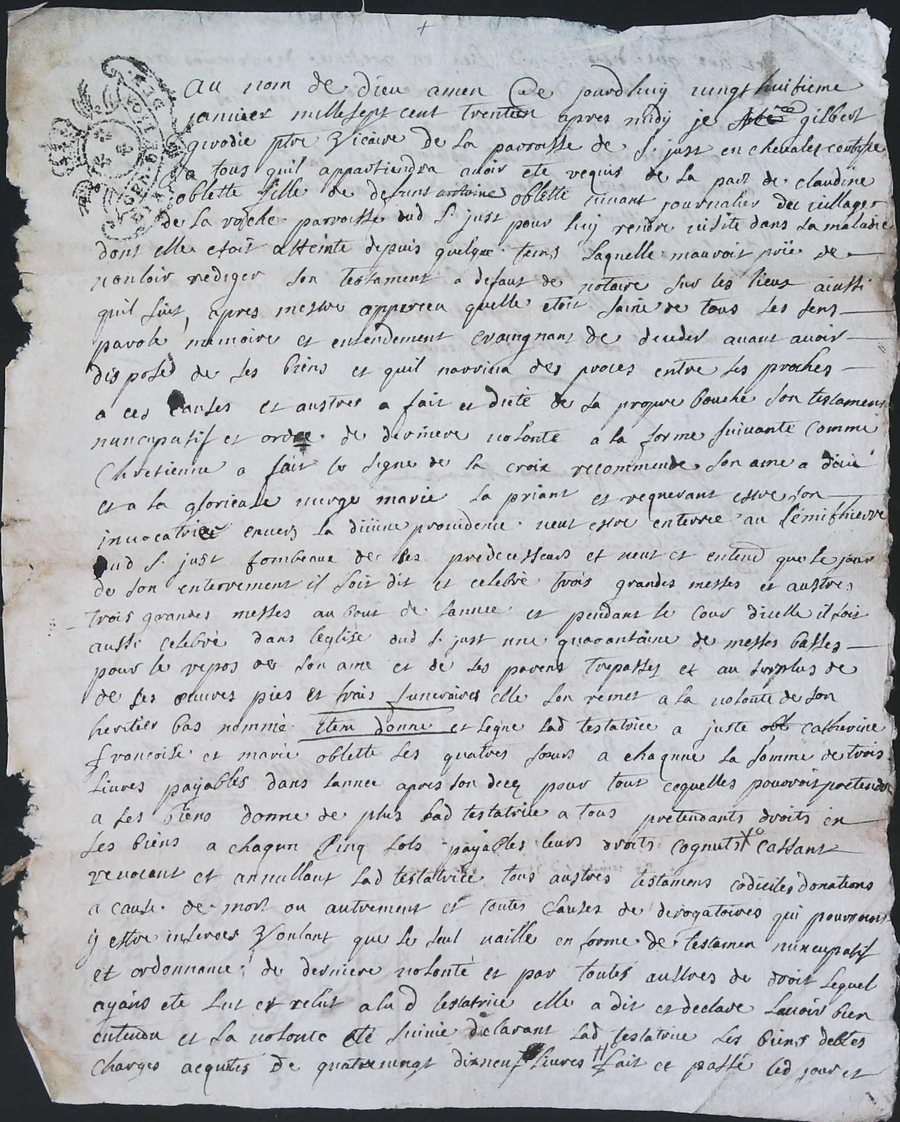 au nom de dieu amen Ce jourdhuy vingt huitieme
janvier mille sept cent trente apres midy je gilbert
girodie ptre Vicaire de la parroisse de St just en chevalet certifie
a tous quil appartiendra avoir ete requis de la part de claudine
oblette fille de defunt antoine oblette vivant journalier du village
de la roche parroisse dud St just pour luy rendre visite dans la maladie
dont elle etoit atteinte depuis quelque tems laquelle mauroit prie de
vouloir rediger son testament a defaut de notaire sur les lieux ainsi
quil suit, apres mestre apperceu quelle etoit saine de tous ses sens
parole, memoire et entendement craingnant de deceder avant avoir
disposé de ses biens et quil narriva des proces entre ses proches
a ces causes et austres a fait et dicté de sa propre bouche son testament
nuncupatif et ordce de derniere volonte a la forme suivante comme
Chretienne a fait le signe de la croix recommende son ame a dieu
et a la glorieuse vierge marie la priant et requerant estre son
invocatrice envers la divine providence veut estre enterrée au semithierre
dud St just tombeaux de ses predecesseurs et veut et entend que le jour
de son enterrement il soit dit et celebré trois grandes messes et austres
trois grandes messes au bout de lannee et pendant le cour dicelle il soit
aussi celebré dans leglise dud St just une quarantaine de messes basses
pour le repos de son ame et de ses parens trepasses et au surplus de
de ses oeuvres pies et frais funeraires elle son remet a la volonte de son
heritier bas nommé Item donne et legue lad testatrice a juste catherine
francoise et marie oblette ses quatres soeurs a chaqune la somme de trois
livres payables dans lannee apres son deces pour tout cequelles pouvoir pretendre
a ses biens donne de plus lad testatrice a tous pretendants droits en
ses biens a chaqun Cinq sols payables leurs droits cognuts cassant
revocant et annullant lad testatrice tous austres testamens codiciles donations
a cause de mort ou autrement et toutes clauses de derogatoires qui pourroient
y estre inserées Voulant que le seul vaille en forme de testamen nuncupatif
et ordonnance de derniere volonté et par toutes austres de droit lequel
ayans ete lut et relut a lad testatrice elle a dit et declaré lavoir bien
entendu et sa volonte ete suivie declarant lad testatrice ses biens debtes
charges acquites de quatrevingt dixneuf livres fait et passé led jour et